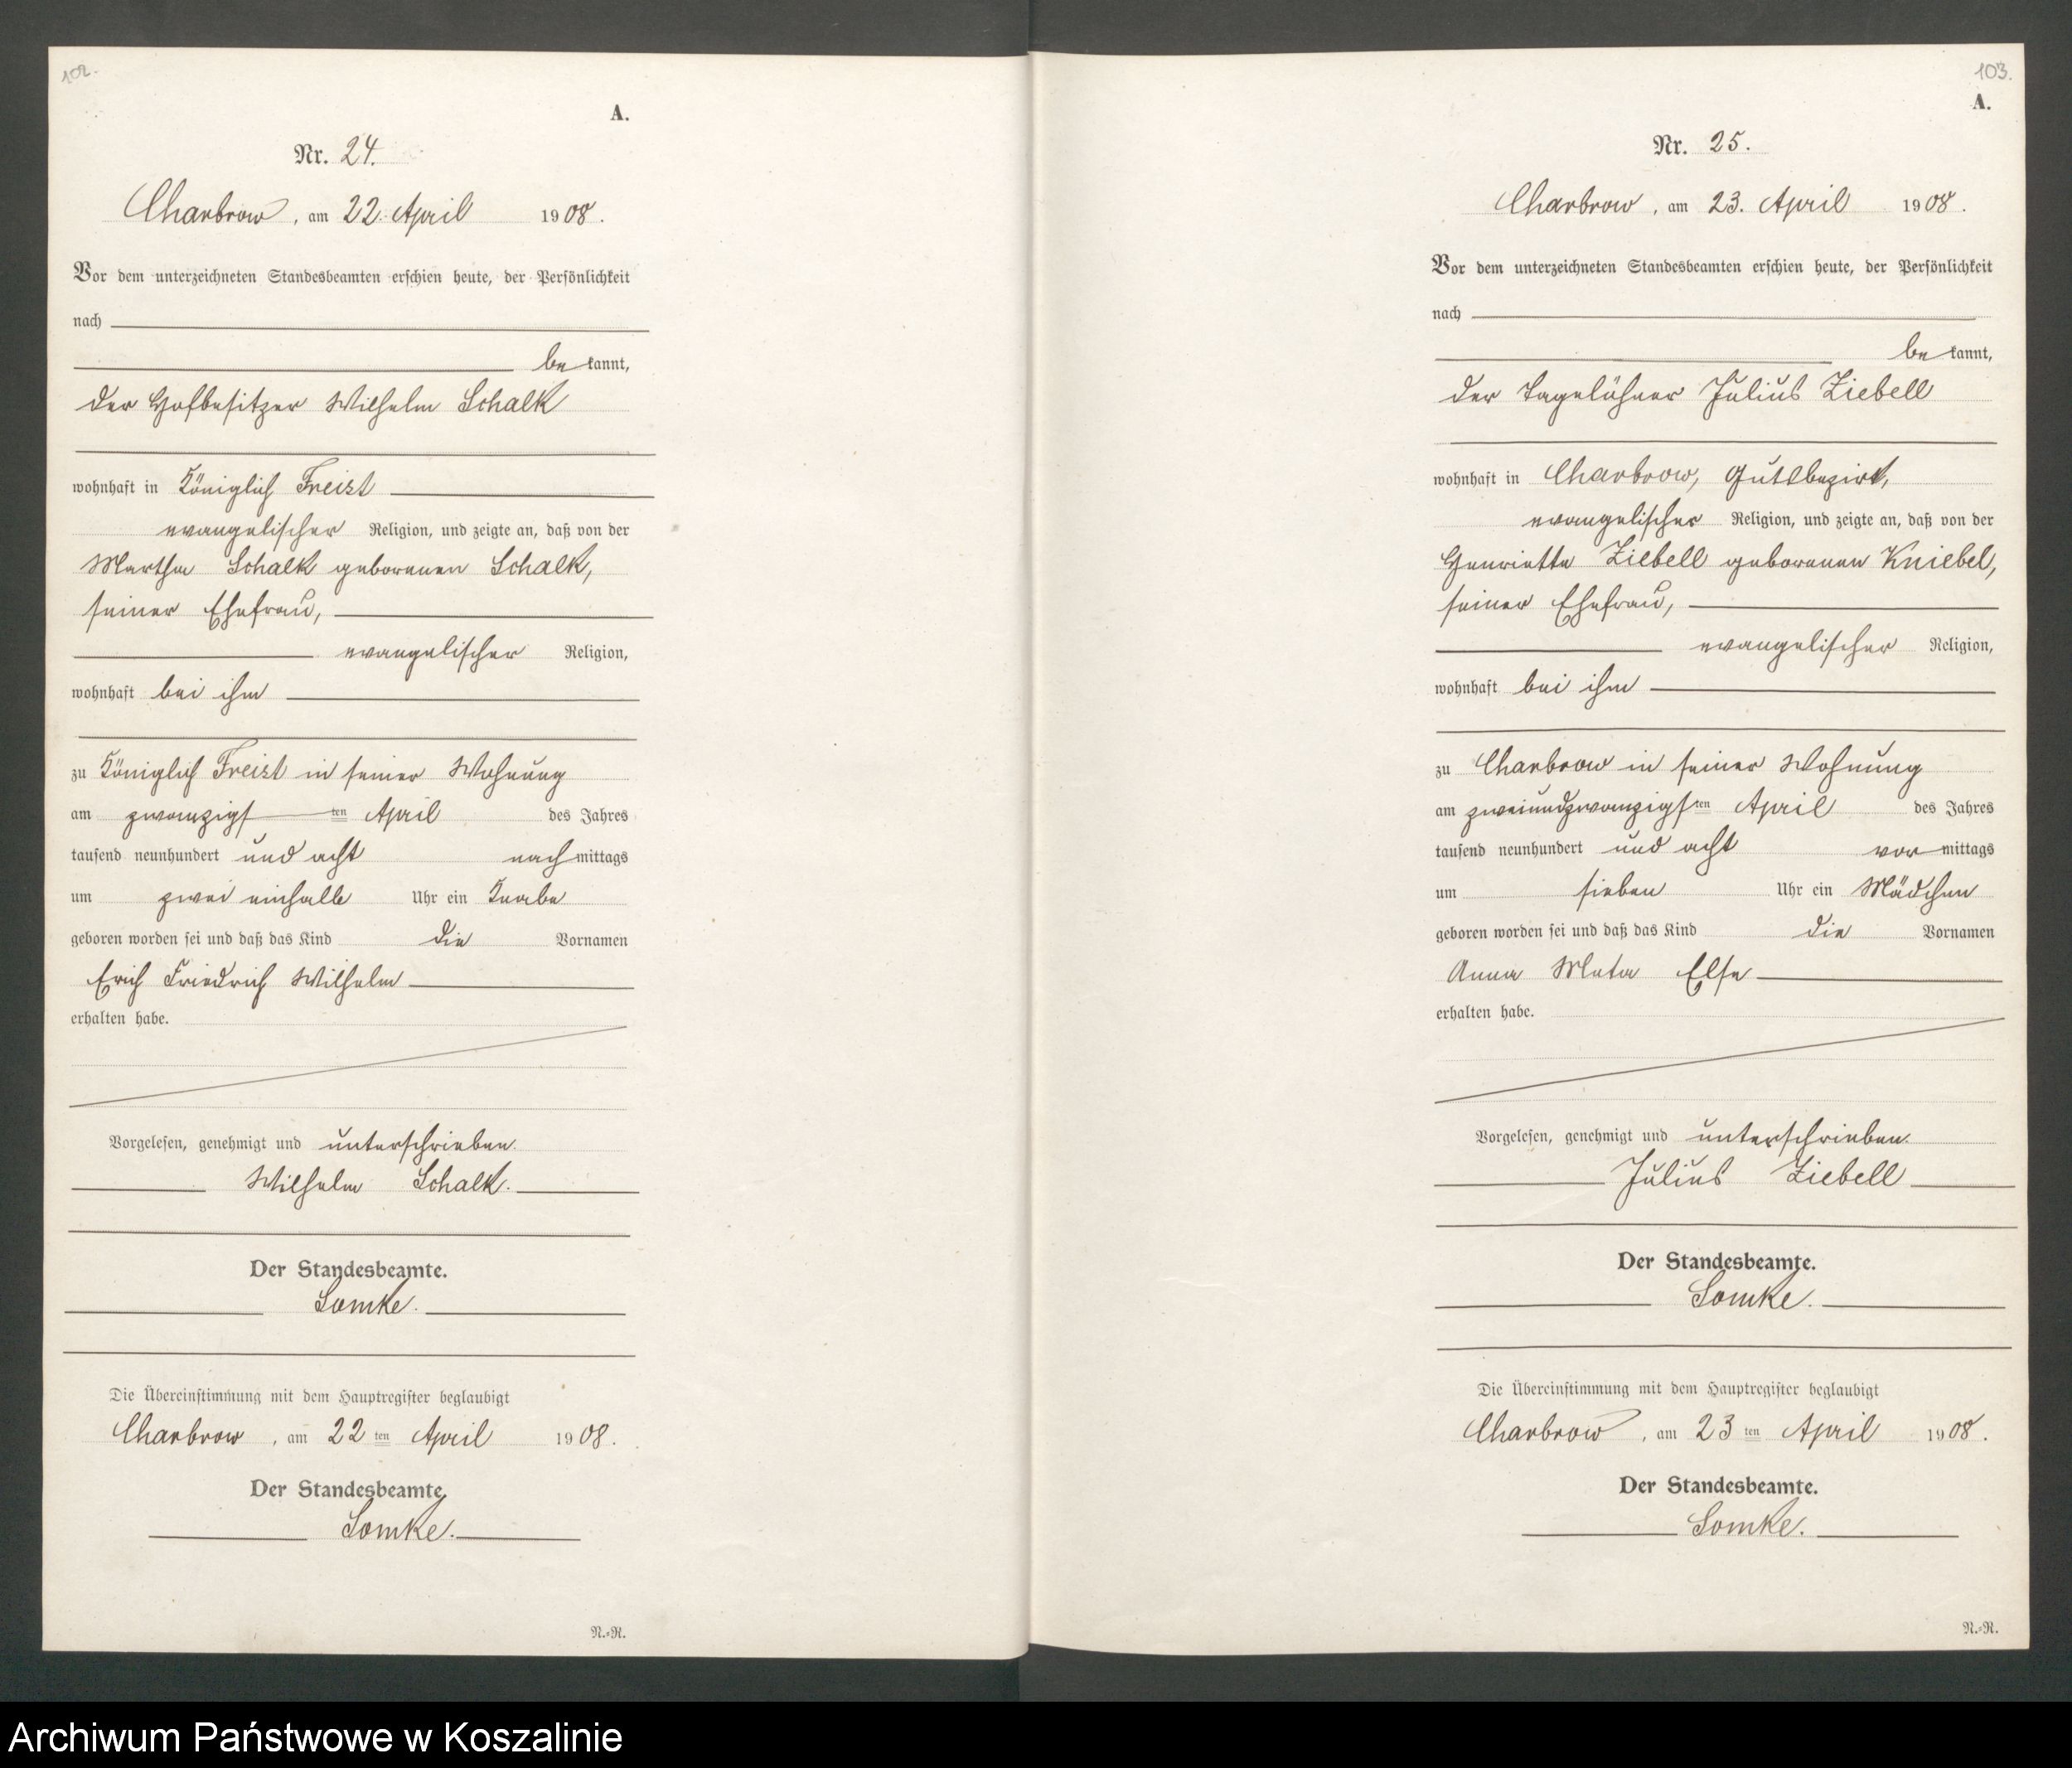 102.
A.
Nr. 24.
Charbrow, am 22. April 1908.
Vor dem unterzeichneten Standesbeamten erschien heute, der Persönlichkeit
nach
be kannt,
der Hofbesitzer Wilhelm Schalk
wohnhaft in Königlich Freist
evangelischer Religion, und zeigte an, daß von der
Martha Schalk geborenen Schalk,
seiner Ehefrau,
evangelischer Religion,
wohnhaft bei ihm
zu Königlich Freist in seiner Wohnung
am zwanzigsten April des Jahres
tausend neunhundert und acht nachmittags
um zwei einhalb Uhr ein Knabe
geboren worden sei und daß das Kind die Vornamen
Erich Friedrich Wilhelm
erhalten habe.
Vorgelesen, genehmigt und unterschrieben.
Wilhelm Schalk.
Der Standesbeamte.
Lomke.
Die Übereinstimmung mit dem Hauptregister beglaubigt
Charbrow, am 22ten April 1908.
Der Standesbeamte.
Lomke.
N.=R.
103.
A.
Nr. 25.
Charbrow, am 23. April 1908.
Vor dem unterzeichneten Standesbeamten erschien heute, der Persönlichkeit
nach
be kannt,
der Tagelöhner Julius Ziebell
wohnhaft in Charbrow, Gutsbezirk,
evangelischer Religion, und zeigte an, daß von der
Henriette Ziebell geborenen Kniebel,
seiner Ehefrau,
evangelischer Religion,
wohnhaft bei ihm
zu Charbrow in seiner Wohnung
am zweiundzwanzigsten April des Jahres
tausend neunhundert und acht vormittags
um sieben Uhr ein Mädchen
geboren worden sei und daß das Kind die Vornamen
Anna Meta Else
erhalten habe.
Vorgelesen, genehmigt und unterschrieben.
Julius Ziebell
Der Standesbeamte.
Lomke.
Die Übereinstimmung mit dem Hauptregister beglaubigt
Charbrow, am 23ten April 1908.
Der Standesbeamte.
Lomke.
N.=R.
Archiwum Państwowe w Koszalinie